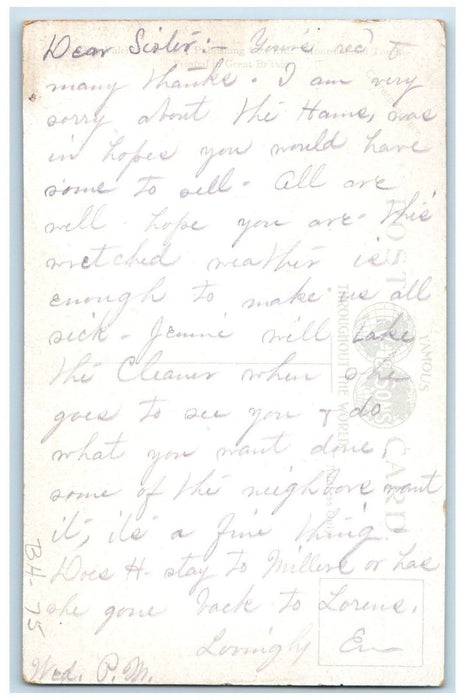 Dear Sister:- Yours rec'd &
many thanks. I am very
sorry about the Hams, was
in hopes you would have
some to sell. All are
well. hope you are. This
wretched weather is
enough to make us all
sick. Jennie will take
the Cleaner when she
goes to see you & do
what you want done,
some of the neighbors want
it, it's a fine thing.
Does H- stay to Millers or has
she gone back to Lorens.
Lovingly Em
Wed. P.M.
B4-75
Printed in Great Britain
POST CARD
FAMOUS
THROUGHOUT THE WORLD